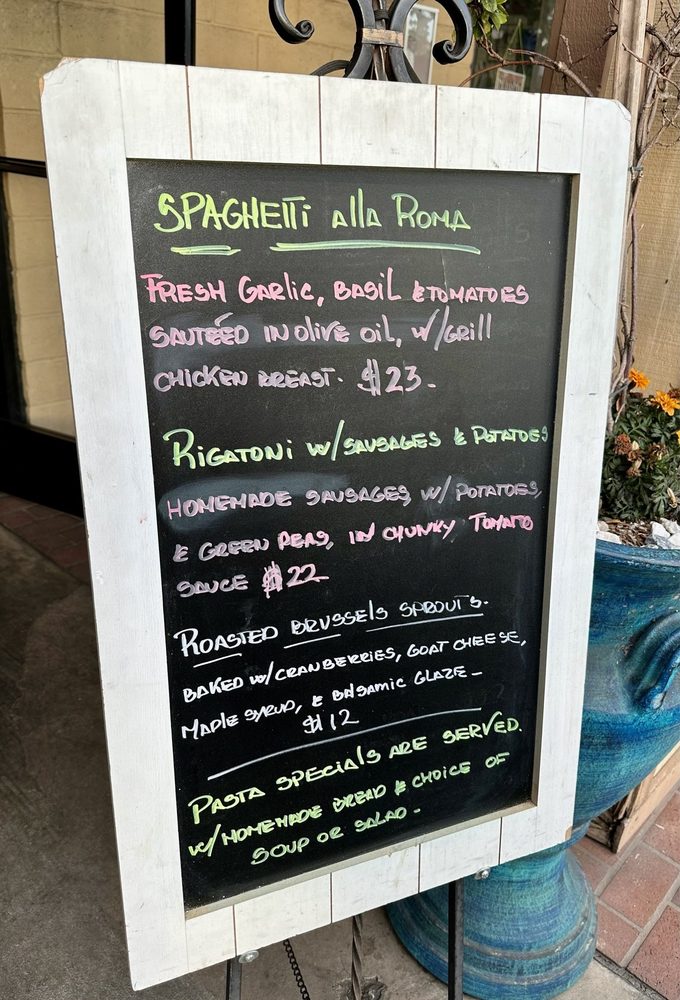 SPAGHETTi allA ROMA
FRESH GARlic, BASiL & TOMATOES
SAUTÉED IN OlIVE OiL, W/GRill
CHICKEN BREAST. $23.
RIGATONI W/SAUSAGES & POTATOES
HOMEMADE SAUSAGES W/ POTATOES,
& GREEN PEAS, IN CHUNKY TOMATO
SAUCE $22
ROASTED BRUSSElS SPROUTS.
BAKED W/CRANBERRIES, GOAT CHEESE,
MAPlE SYRUP, & BAlSAMIC GLAZE -
$12
PASTA SPECIAlS ARE SERVED.
W/HOMEMADE BREAD & CHOICE OF
SOUP OR SALAD.